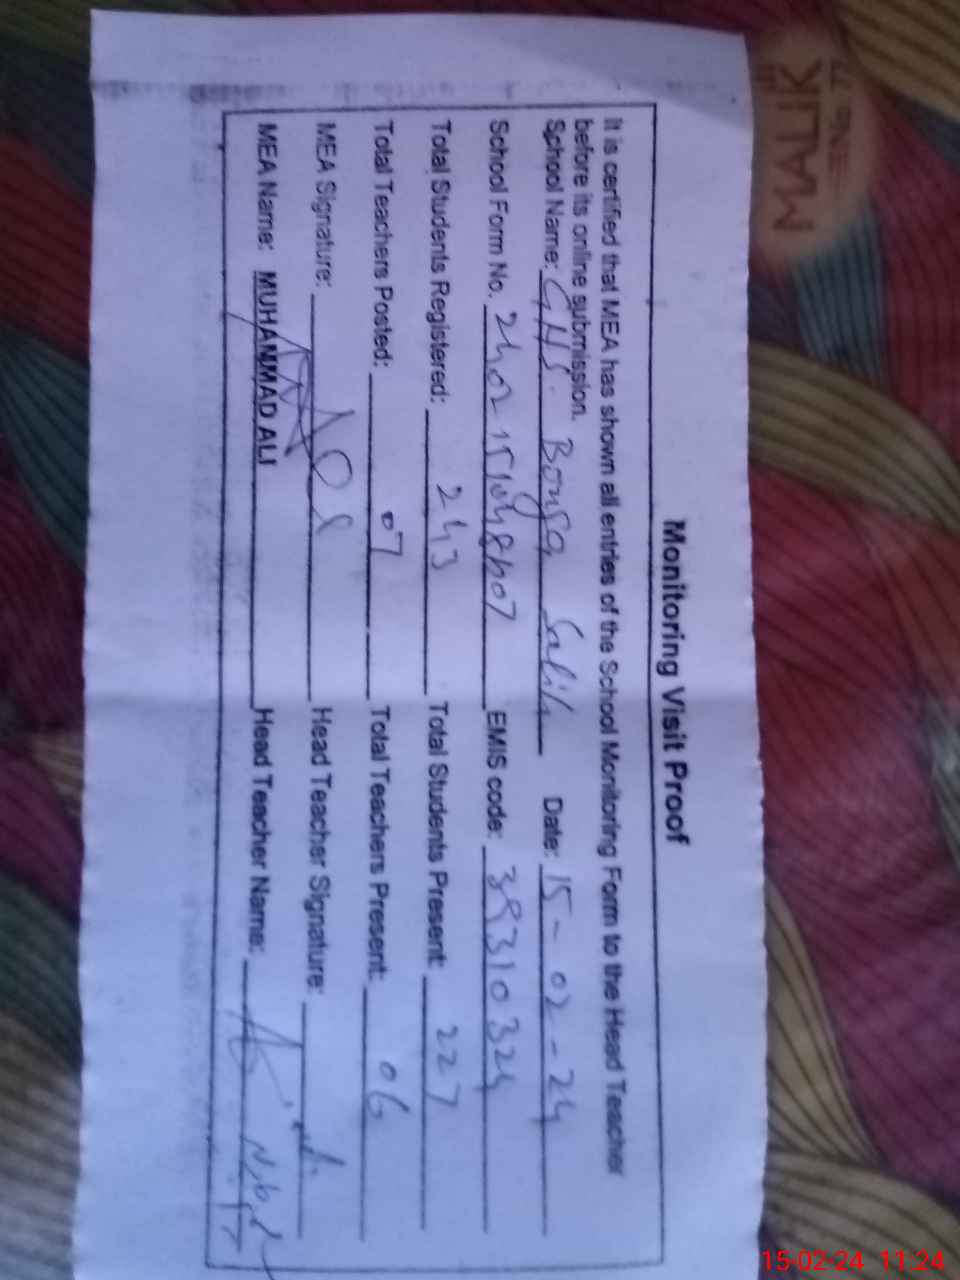 Monitoring Visit Proof
It is certified that MEA has shown all entries of the School Monitoring Form to the Head Teacher
before its online submission.
School Name: GHS. Bonga Salih Date: 15-02-24
School Form No. EMIS code: 38310324
Total Students Registered: 243 Total Students Present: 227
Total Teachers Posted: 07 Total Teachers Present: 06
MEA Signature: Head Teacher Signature:
MEA Name: MUHAMMAD ALI Head Teacher Name:
MALIK
15-02-24 11:24